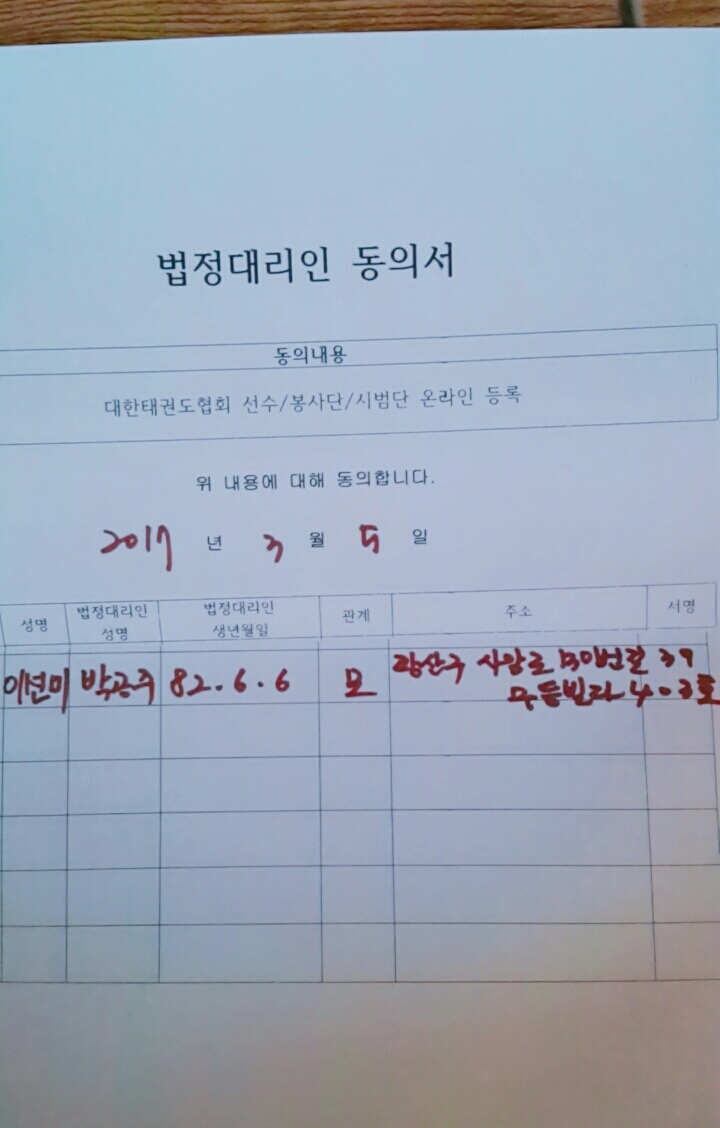 법정대리인 동의서
동의내용
대한태권도협회 선수/봉사단/시범단 온라인 등록
위 내용에 대해 동의합니다.
2017 년 3 월 5 일
성명 법정대리인 성명 법정대리인 생년월일 관계 주소 서명
이선미 박공주 82.6.6 모 광산구 사암로 39
무등빌라 403호